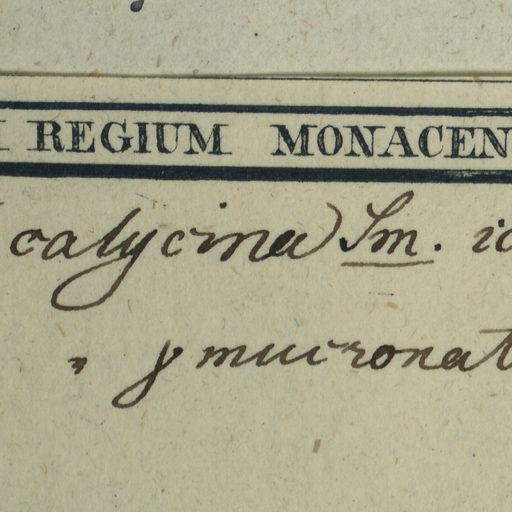 REGIUM MONACEN
calycina Sm. ic
" γ mucronat